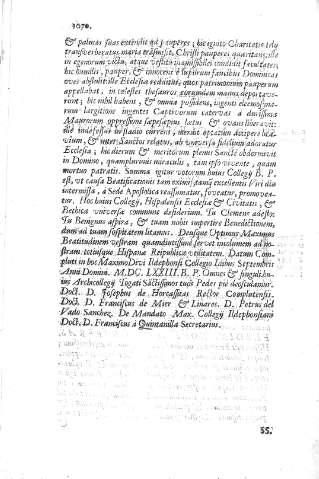 3070.
& palmas suas extendit ad pauperes; hic ignito Charitatis telo
transverberatus maria transivit, Christi pauperes quæritans, ille
in egenorum victu, atque vestitu amplissimas condidit facultates,
hic humilis, pauper, & innocens è luporum faucibus Dominicas
oves
appellabat, in cælestes thesauros manus depor-
; hic nihil habens, & omnia possidens, ingenti eleemosyna-
rum largitione ingentes Captivorum catervas à durissima
Maurorum oppressione
ille indefessus in stadio currens, merito optatum accipere
vium, & inter Sanctos relatus, ab universa fidelium adoratur
Ecclesia; hic dierum & meritorum plenus Sanctè obdormivit
in Domino, quamplurimis miraculis, tam ipso vivente, quam
mortuo patratis. Summa igitur votorum huius Collegij B. P.
est, ut causa Beatificationis tam eximij, tamq; excellentis Viri diu
intermissa, à Sede Apostolica reassumatur, foveatur, promovea-
tur. Hoc huius Collegij, Hispalensis Ecclesiæ & Civitatis, &
Bethicæ universæ commune desiderium. Tu Clemens adesto:
Tu Benignus aspira, & tuam nobis impertire Benedictionem,
dum ad tuam sospitatem litamus. Deusque Optimus Maximus
Beatitudinem vestram quamdiutissimè servet incolumem ad no-
stram totiusque Hispanæ Reipublicæ utilitatem. Datum Com-
pluti in hoc Maximo Divi Ildephonsi Collegio Idibus Septembris
Anni Domini M.DC.LXXIII. B. P. Omnes & singuli hu-
ius Archicollegij Togati Sāctissimos tuos Pedes piè deosculamur.
Doct. D. Josephus de Horcassitas Rector Complutensis.
Doct. D. Franciscus de Mier & Linares. D. Petrus del
Vado Sanchez. De Mandato Max. Collegij Ildephonsiani
Doct. D. Franciscus à Quintanilla Secretarius.
SS.